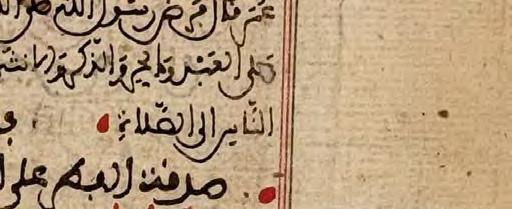 عمر قال فرض رسول الله صلى الله
على العبد والحر والذكر والانثى
الناس الى الصلاة
صدقة الفطر على ا